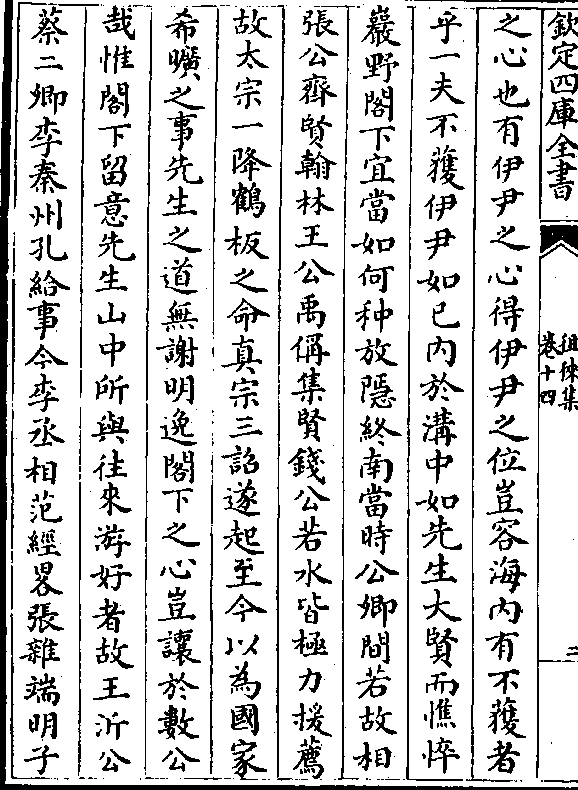 欽定四庫全書
徂徠集
卷十四
二
之心也有伊尹之心得伊尹之位豈容海内有不獲者
乎一夫不獲伊尹如已内於溝中如先生大賢而憔悴
巖野閣下宜當如何种放隱終南當時公卿間若故相
張公齊賢翰林王公禹偁集賢錢公若水皆極力援薦
故太宗一降鶴板之命真宗三詔遂起至今以為國家
希曠之事先生之道無謝明逸閣下之心豈讓於數公
哉惟閣下留意先生山中所與往來游好者故王沂公
蔡二卿李秦州孔給事今李丞相范經畧張雜端明子